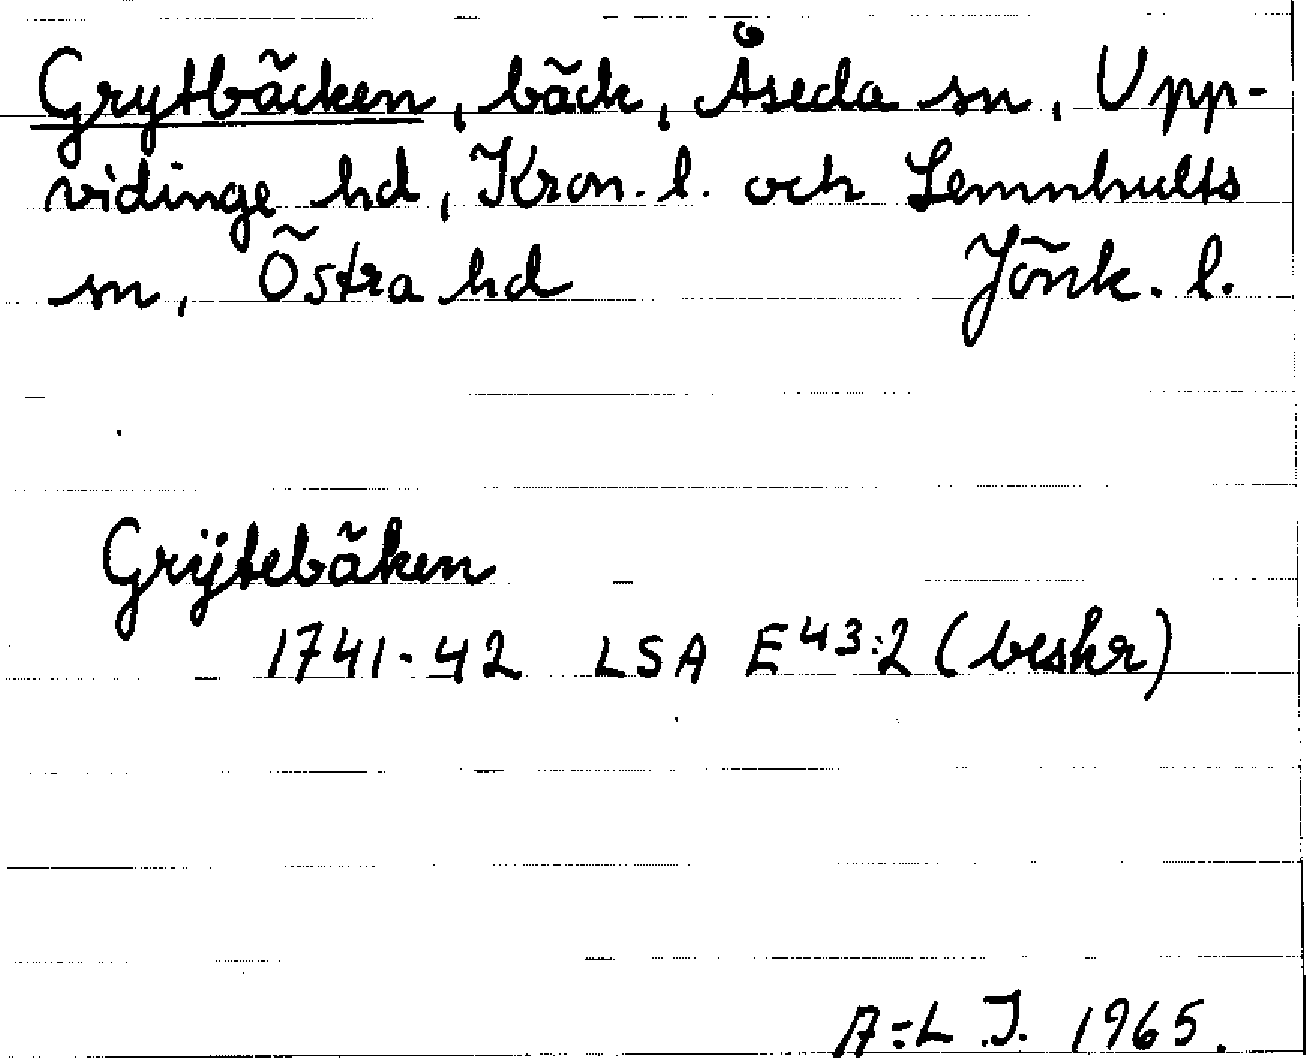 Grytbäcken, bäck, Åseda sn, Upp-
vidinge hd, Kron. l. och Lemnhults
sn, Östra hd Jönk. l.
Grÿtebäken
1741-42 LSA E43:2 (beskr)
A-L J. 1965.